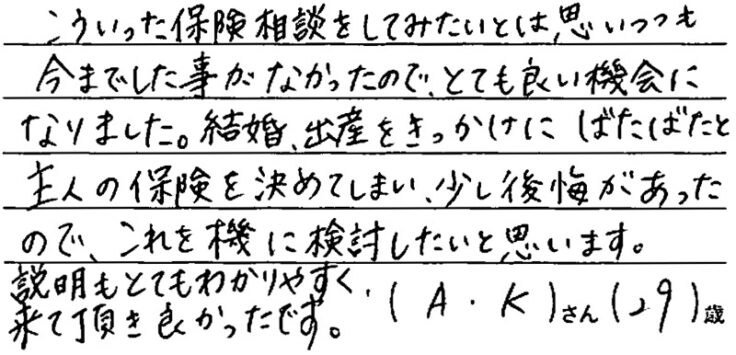 こういった保険相談をしてみたいとは思いつつも
今までした事がなかったので、とても良い機会に
なりました。結婚、出産をきっかけに ばたばたと
主人の保険を決めてしまい、少し後悔があった
ので、これを機に検討したいと思います。
説明もとてもわかりやすく、
来て頂き良かったです。
(A・K)さん(29)歳